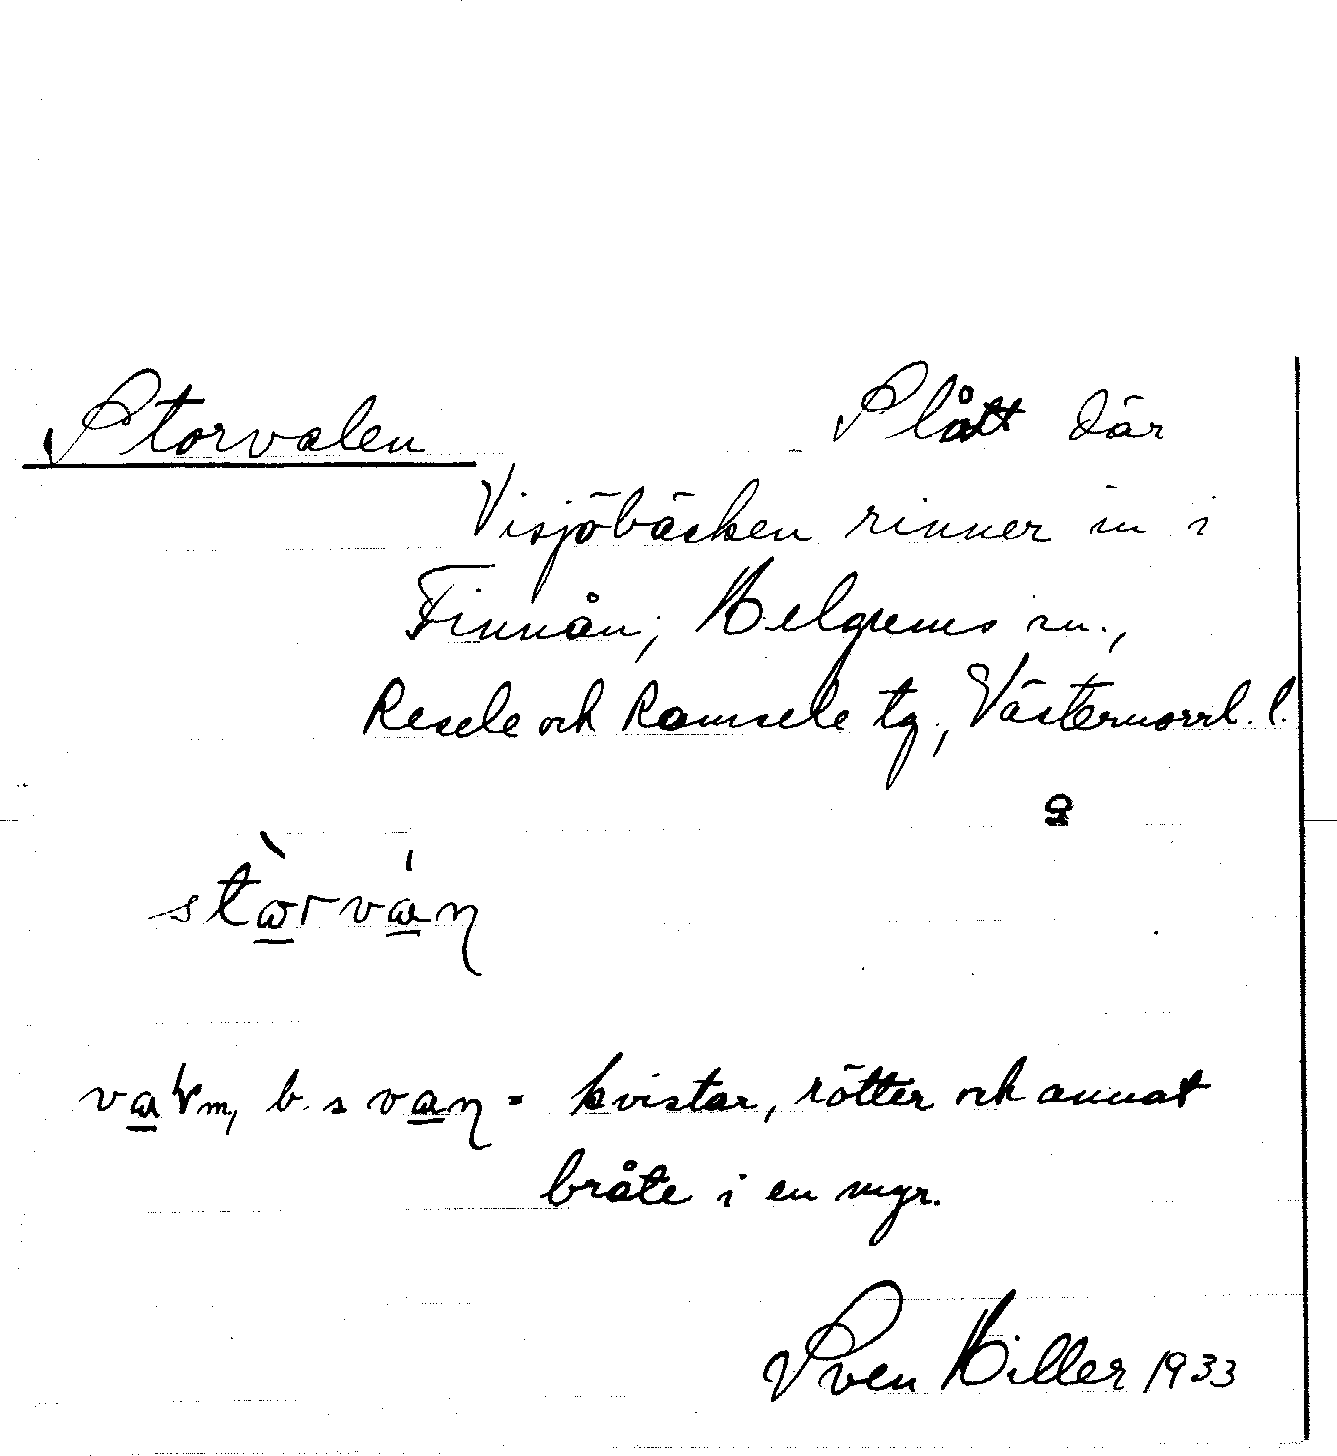 Storvalen Slått där
Visjöbäcken rinner in i
Finnån, Helgums sn.,
Resele och Ramsele tg, Västernorrl. l.
va m, b. s = kvistar, rötter och annat
bråte i en myr.
Sven Hiller 1933